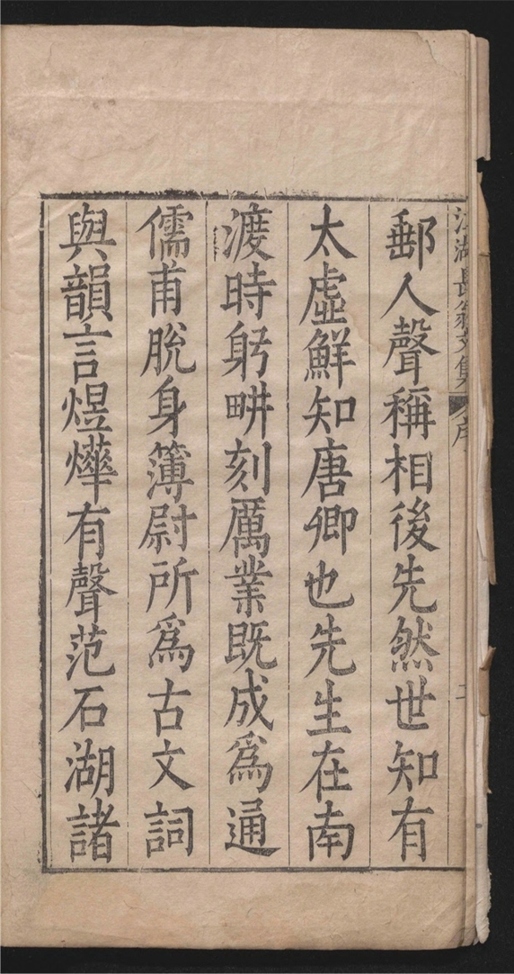 江湖長翁文集 序
郵人聲稱相後先然世知有
太虛鮮知唐卿也先生在南
渡時躬畊刻厲業既成為通
儒甫脫身簿尉所為古文詞
與韻言煜燁有聲范石湖諸